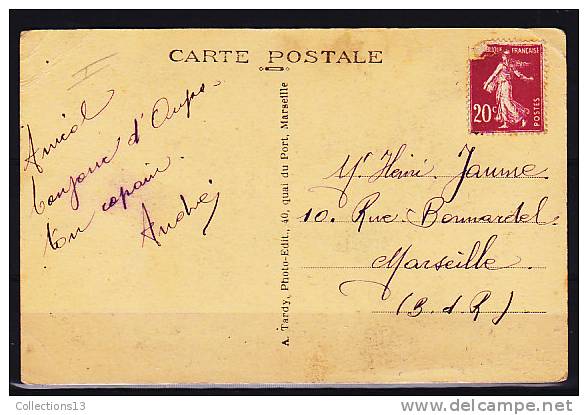 CARTE POSTALE
RÉPUBLIQUE FRANÇAISE
20c
POSTES
Amical
bonjour d'Aups
ton copain.
André
A. Tardy, Photo-Edit., 40, quai du Port, Marseille
Mr Henri Jaume
10. Rue Bonnardel
Marseille.
(B. d R)
Collections13
http://www.delcampe.net